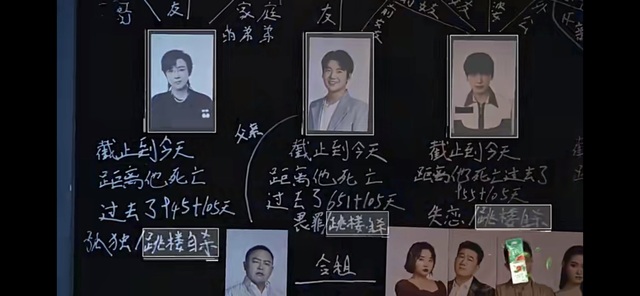 友
家庭
友
弟弟
截止到今天
距离他死亡
过去了945+105天
孤独 跳楼自杀
父亲
截止到今天
距离他死亡
过去了651+105天
畏罪 跳楼自杀
截止到今天
距离他死亡过去了
955+105天
失恋. 跳楼自杀